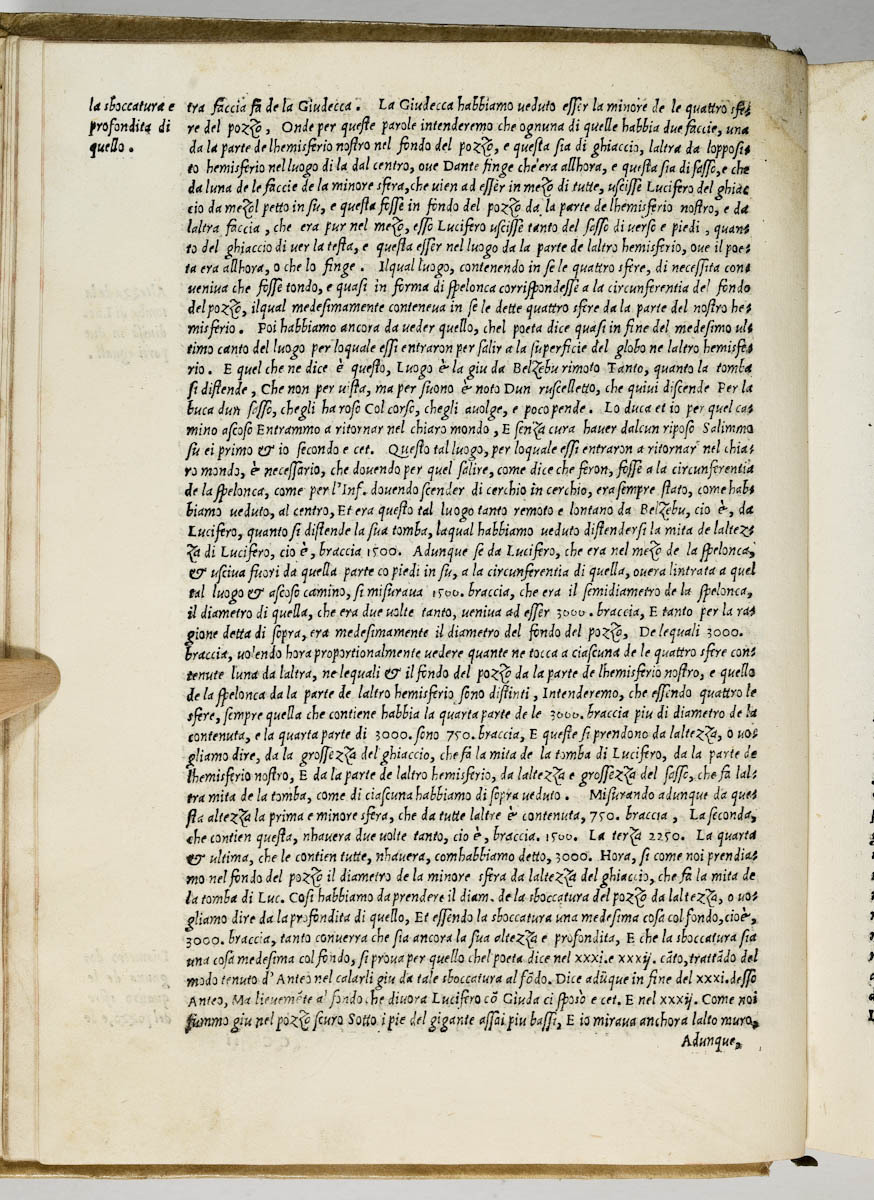 la sboccatura e
profondita di
quello.
tra faccia fa de la Giudecca. La Giudecca habbiamo ueduto esser la minore de le quattro sfe-
re del pozzo, Onde per queste parole intenderemo che ognuna di quelle habbia due faccie, una
da la parte de lhemisferio nostro nel fondo del pozzo, e questa sia di ghiaccio, laltra da lopposi-
to hemisferio nel luogo di la dal centro, oue Dante finge che era allhora, e questa sia di sasso, e che
da luna de le faccie de la minore sfera, che uien ad esser in mezo di tutte, uscisse Lucifero del ghiac-
cio da mezol petto in su, e questa fosse in fondo del pozzo da la parte de lhemisferio nostro, e da
laltra faccia, che era pur nel mezo, esso Lucifero uscisse tanto del sasso di uerso e piedi, quan-
to del ghiaccio di uer la testa, e questa esser nel luogo da la parte de laltro hemisferio, oue il poe-
ta era allhora, o che lo finge. Ilqual luogo, contenendo in se le quattro sfere, di necessita con-
ueniua che fosse tondo, e quasi in forma di spelonca corrispondesse a la circunferentia del fondo
del pozzo, ilqual medesimamente conteneua in se le dette quattro sfere da la parte del nostro he-
misferio. Poi habbiamo ancora da ueder quello, chel poeta dice quasi in fine del medesimo ul-
timo canto del luogo per loquale essi entraron per salir a la superficie del globo ne laltro hemisfe-
rio. E quel che ne dice è questo, Luogo è la giu da Belzebu rimoto Tanto, quanto la tomba
si distende, Che non per uista, ma per suono è noto Dun ruscelletto, che quiui discende Per la
buca dun sasso, chegli ha roso Col corso, chegli auolge, e poco pende. Lo duca et io per quel ca-
mino ascoso Entrammo a ritornar nel chiaro mondo, E senza cura hauer dalcun riposo Salimmo
su ei primo & io secondo e cet. Questo tal luogo, per loquale essi entraron a ritornar nel chia-
ro mondo, è necessario, che douendo per quel salire, come dice che feron, fosse a la circunferentia
de la spelonca, come per l'Inf. douendo scender di cerchio in cerchio, era sempre stato, come hab-
biamo ueduto, al centro, Et era questo tal luogo tanto remoto e lontano da Belzebu, cio è, da
Lucifero, quanto si distende la sua tomba, laqual habbiamo ueduto distendersi la mita de laltez-
za di Lucifero, cio è, braccia 1500. Adunque se da Lucifero, che era nel mezo de la spelonca,
& usciua fuori da quella parte co piedi in su, a la circunferentia di quella, ouera lintrata a quel
tal luogo & ascoso camino, si misuraua 1500. braccia, che era il semidiametro de la spelonca,
il diametro di quella, che era due uolte tanto, ueniua ad esser 3000. braccia, E tanto per la ra-
gione detta di sopra, era medesimamente il diametro del fondo del pozzo, De lequali 3000.
braccia, uolendo hora proportionalmente uedere quante ne tocca a ciascuna de le quattro sfere con-
tenute luna da laltra, ne lequali & il fondo del pozzo da la parte de lhemisferio nostro, e quello
de la spelonca da la parte de laltro hemisferio sono distinti, Intenderemo, che essendo quattro le
sfere, sempre quella che contiene habbia la quarta parte de le 3000. braccia piu di diametro de la
contenuta, e la quarta parte di 3000. sono 750. braccia, E queste si prendono da laltezza, o uo-
gliamo dire, da la grossezza del ghiaccio, che fa la mita de la tomba di Lucifero, da la parte de
lhemisferio nostro, E da la parte de laltro hemisferio, da laltezza e grossezza del sasso, che fa lal-
tra mita de la tomba, come di ciascuna habbiamo di sopra ueduto. Misurando adunque da que-
sta altezza la prima e minore sfera, che da tutte laltre è contenuta, 750. braccia, La seconda,
che contien questa, nhauera due uolte tanto, cio è, braccia. 1500. La terza 2250. La quarta
& ultima, che le contien tutte, nhauera, comhabbiamo detto, 3000. Hora, si come noi prendia-
mo nel fondo del pozzo il diametro de la minore sfera da laltezza del ghiaccio, che fa la mita de
la tomba di Luc. Cosi habbiamo da prendere il diam. de la sboccatura del pozzo da laltezza, o uo-
gliamo dire da la profondita di quello, Et essendo la sboccatura una medesima cosa col fondo, cioè,
3000. braccia, tanto conuerra che sia ancora la sua altezza e profondita, E che la sboccatura sia
una cosa medesima col fondo, si proua per quello chel poeta dice nel xxxi. e xxxij. cãto, trattãdo del
modo tenuto d'Anteo nel calarli giu da tale sboccatura al fõdo. Dice adũque in fine del xxxi. desso
Anteo, Ma lieuemẽte al fondo che diuora Lucifero cõ Giuda ci sposò e cet. E nel xxxij. Come noi
fummo giu nel pozzo scuro Sotto i pie del gigante assai piu bassi, E io miraua anchora lalto muro,
Adunque,